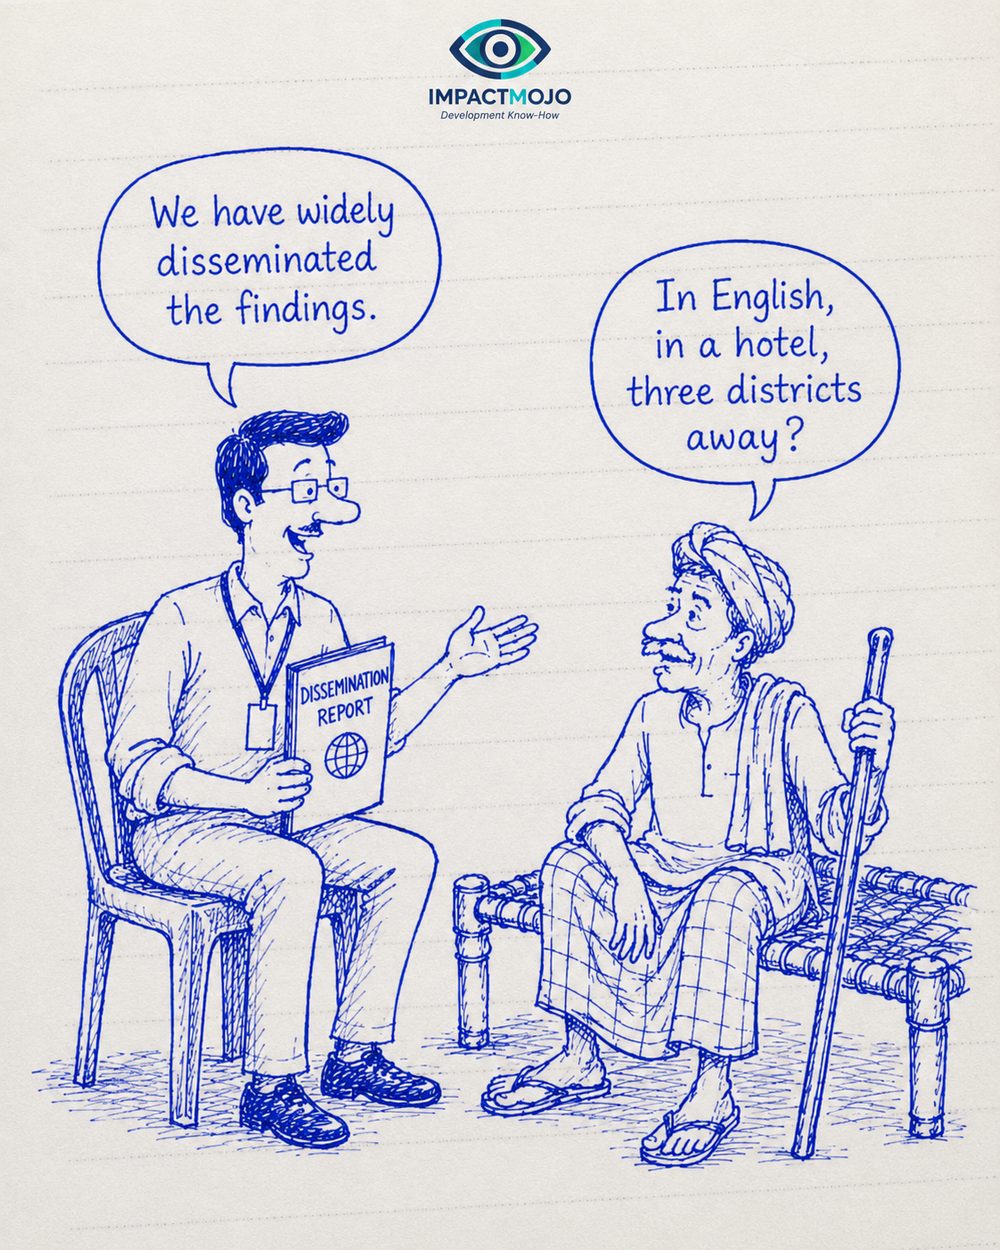 IMPACTMOJO
Development Know-How
We have widely
disseminated
the findings.
In English,
in a hotel,
three districts
away?
DISSEMINATION
REPORT